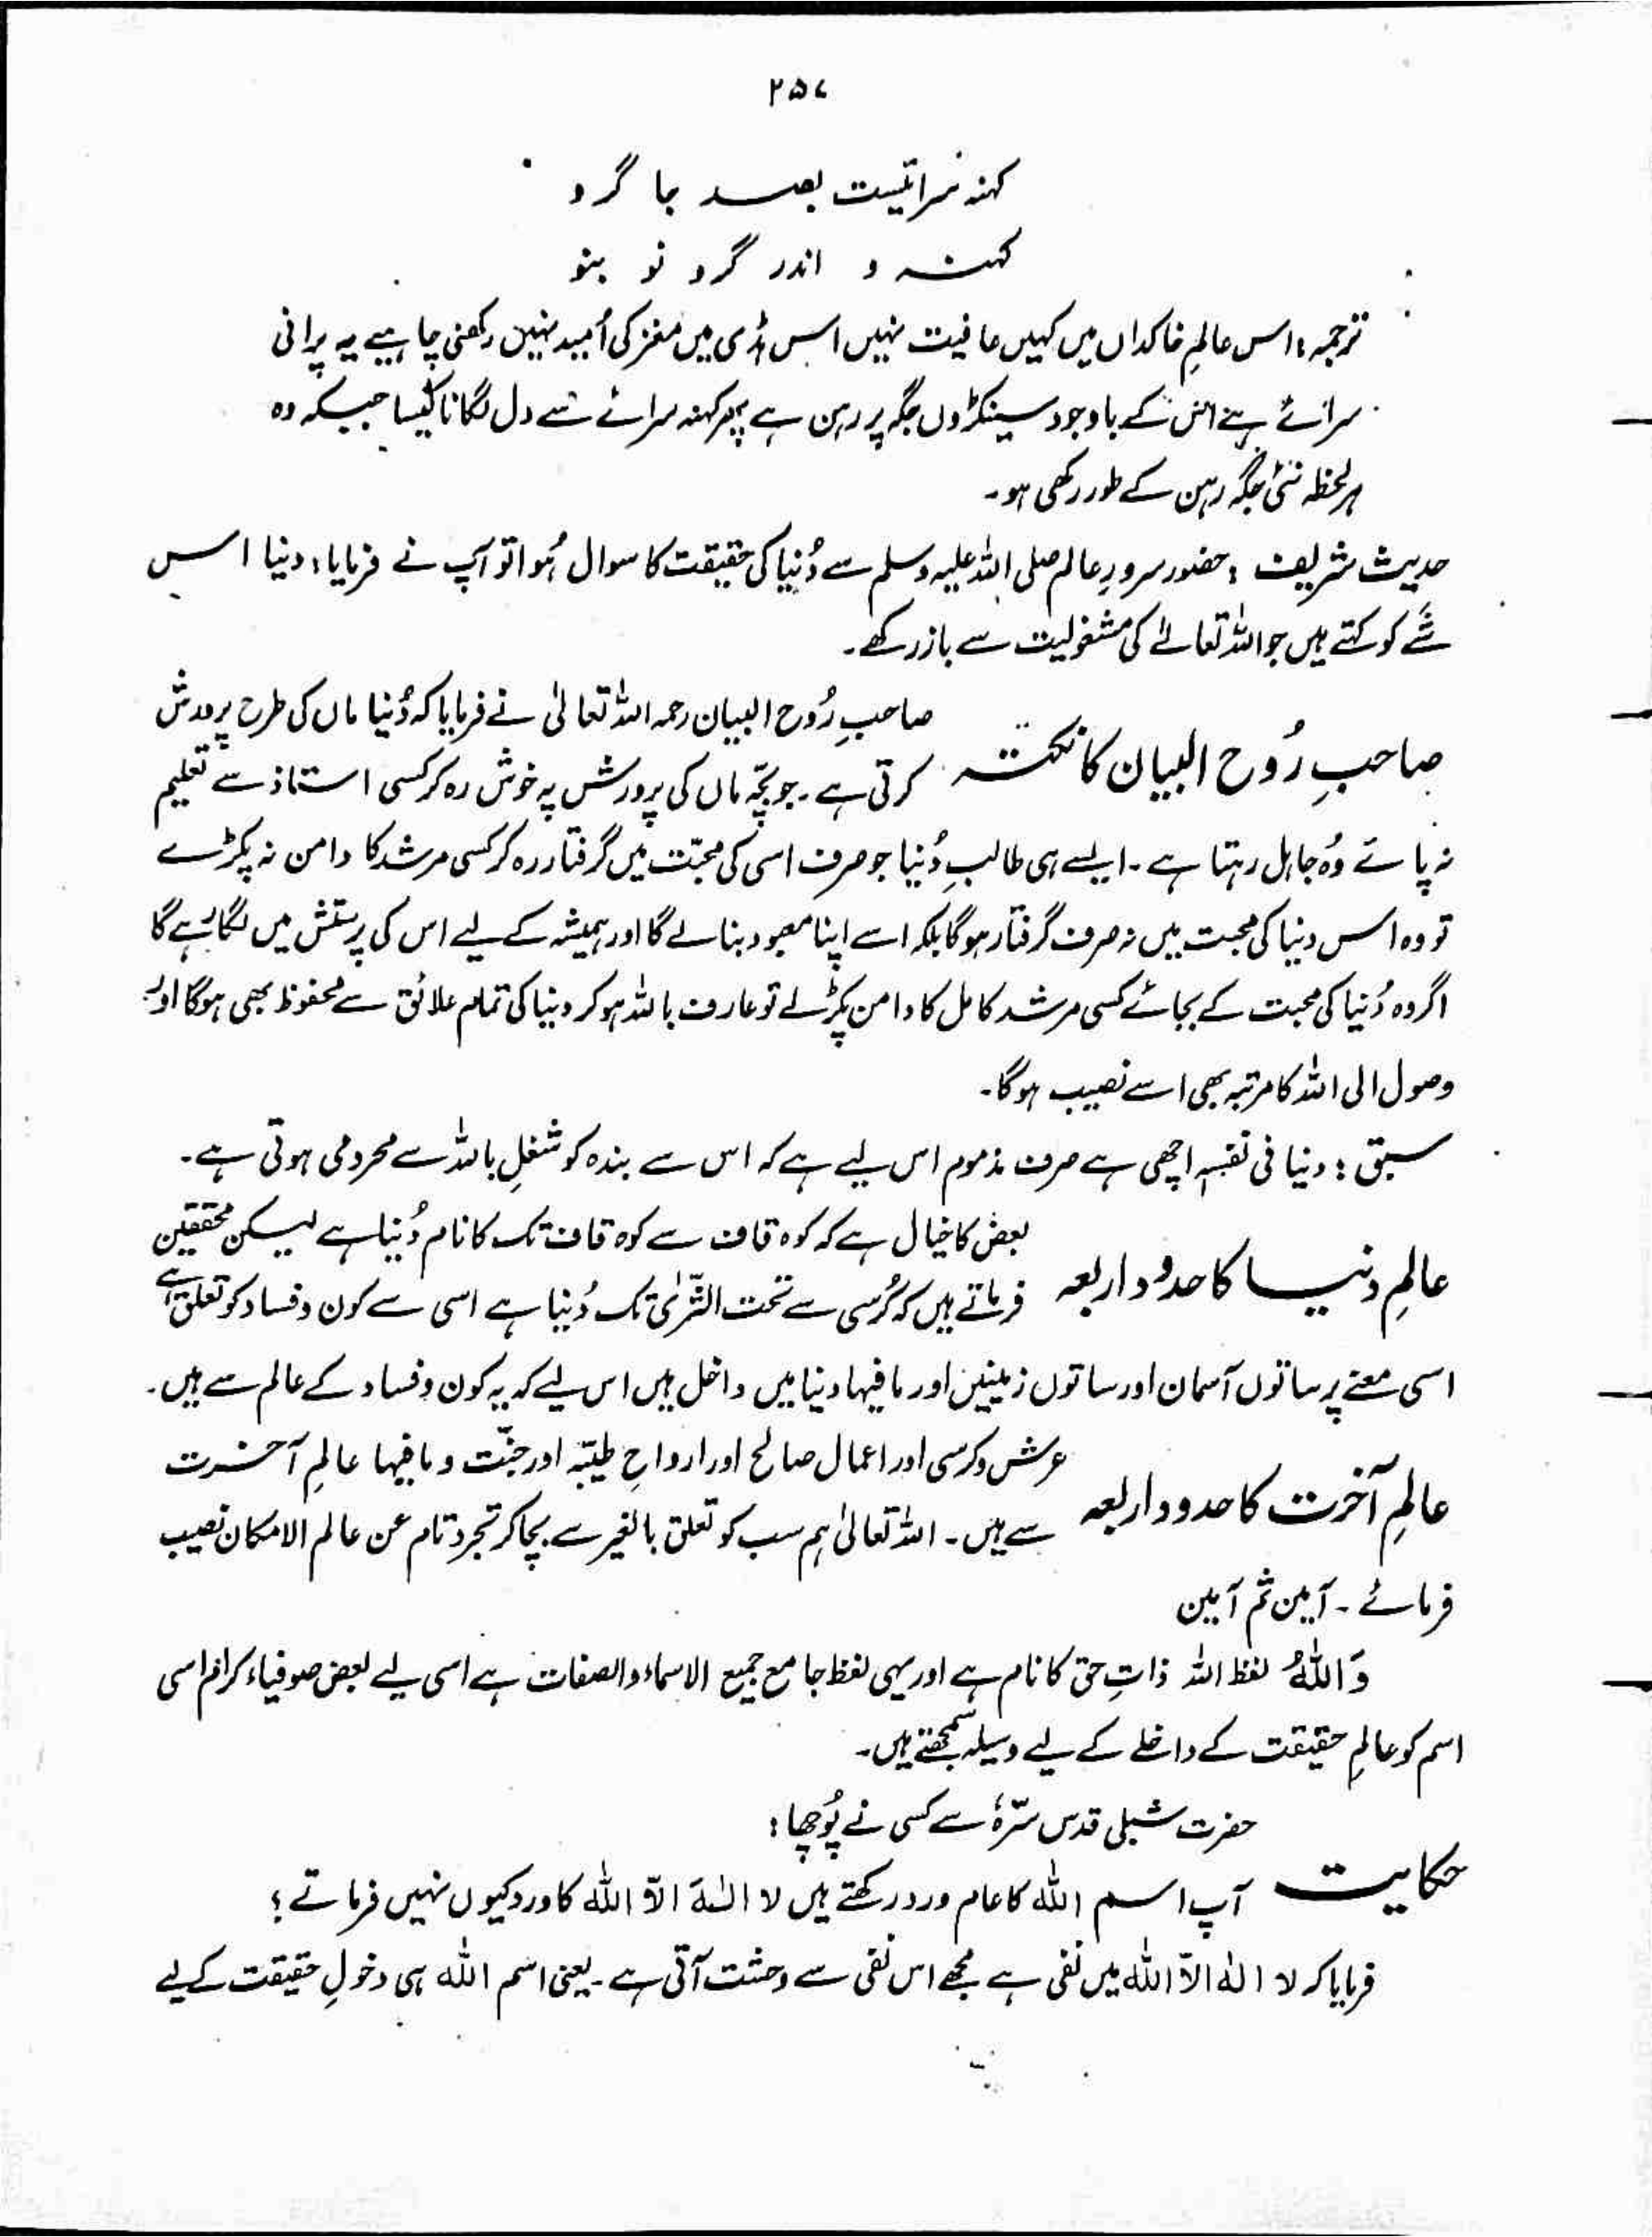 ۲۵۷
کہنہ سرائیست بصد جا گرو
کہنہ و اندر گرو نو بنو
ترجمہ: اس عالمِ خاکداں میں کہیں عافیت نہیں اس ہڈی میں مغز کی اُمید نہیں رکھنی چاہیے یہ پرانی
سرائے ہے اس کے باوجود سینکڑوں جگہ پر رہن ہے پھر کہنہ سرائے سے دل لگانا کیسا جبکہ وہ
ہر لحظہ نئی جگہ رہن کے طور رکھی ہو۔
حدیث شریف: حضور سرورِ عالم صلی اللہ علیہ وسلم سے دُنیا کی حقیقت کا سوال ہُوا تو آپ نے فرمایا: دنیا اس
شَے کو کہتے ہیں جو اللہ تعالےٰ کی مشغولیت سے باز رکھے۔
صاحبِ رُوح البیان کا نکتہ صاحبِ رُوح البیان رحمہ اللہ تعالیٰ نے فرمایا کہ دُنیا ماں کی طرح پرورش
کرتی ہے۔ جو بچّہ ماں کی پرورش پہ خوش رہ کر کسی استاذ سے تعلیم
نہ پائے وُہ جاہل رہتا ہے۔ ایسے ہی طالبِ دُنیا جو صرف اسی کی محبّت میں گرفتار رہ کر کسی مرشد کا دامن نہ پکڑے
تو وہ اس دنیا کی محبت میں نہ صرف گرفتار ہوگا بلکہ اسے اپنا معبود بنا لے گا اور ہمیشہ کے لیے اس کی پرستش میں لگا رہے گا
اگر وہ دُنیا کی محبت کے بجائے کسی مرشد کامل کا دامن پکڑلے تو عارف باللہ ہو کر دنیا کی تمام علائق سے محفوظ بھی ہوگا اور
وصول الی اللہ کا مرتبہ بھی اسے نصیب ہوگا۔
سبق: دنیا فی نفسہٖ اچھی ہے صرف مذموم اس لیے ہے کہ اس سے بندہ کو شغلِ باللہ سے محرومی ہوتی ہے۔
عالمِ دنیا کا حدود اربعہ بعض کا خیال ہے کہ کوہ قاف سے کوہ قاف تک کا نام دُنیا ہے لیکن محققین
فرماتے ہیں کہ کُرسی سے تحت الثّریٰ تک دُنیا ہے اسی سے کون و فساد کو تعلق ہے
اسی معنے پر ساتوں آسمان اور ساتوں زمینیں اور مافیہا دنیا میں داخل ہیں اس لیے کہ یہ کون و فساد کے عالم سے ہیں۔
عالمِ آخرت کا حدود اربعہ عرش و کرسی اور اعمال صالح اور ارواحِ طیبّہ اور جنّت و مافیہا عالمِ آخرت
سے ہیں۔ اللہ تعالیٰ ہم سب کو تعلق بالغیر سے بچا کر تجرد تام عن عالم الامکان نصیب
فرمائے۔ آمین ثم آمین
وَاللہُ لفظ اللہ ذاتِ حق کا نام ہے اور یہی لفظ جامع جمیع الاسماء والصفات ہے اسی لیے بعض صوفیاء کرام اسی
اسم کو عالمِ حقیقت کے داخلے کے لیے وسیلہ سمجھتے ہیں۔
حضرت شبلی قدس سّرہٗ سے کسی نے پُوچھا:
حکایت آپ اسم اللہ کا عام ورد رکھتے ہیں لا الٰہَ الاّ اللہ کا ورد کیوں نہیں فرماتے؟
فرمایا کہ لا الٰہ الاّ اللہ میں نفی ہے مجھے اس نفی سے وحشت آتی ہے۔ یعنی اسم اللہ ہی دخولِ حقیقت کے لیے